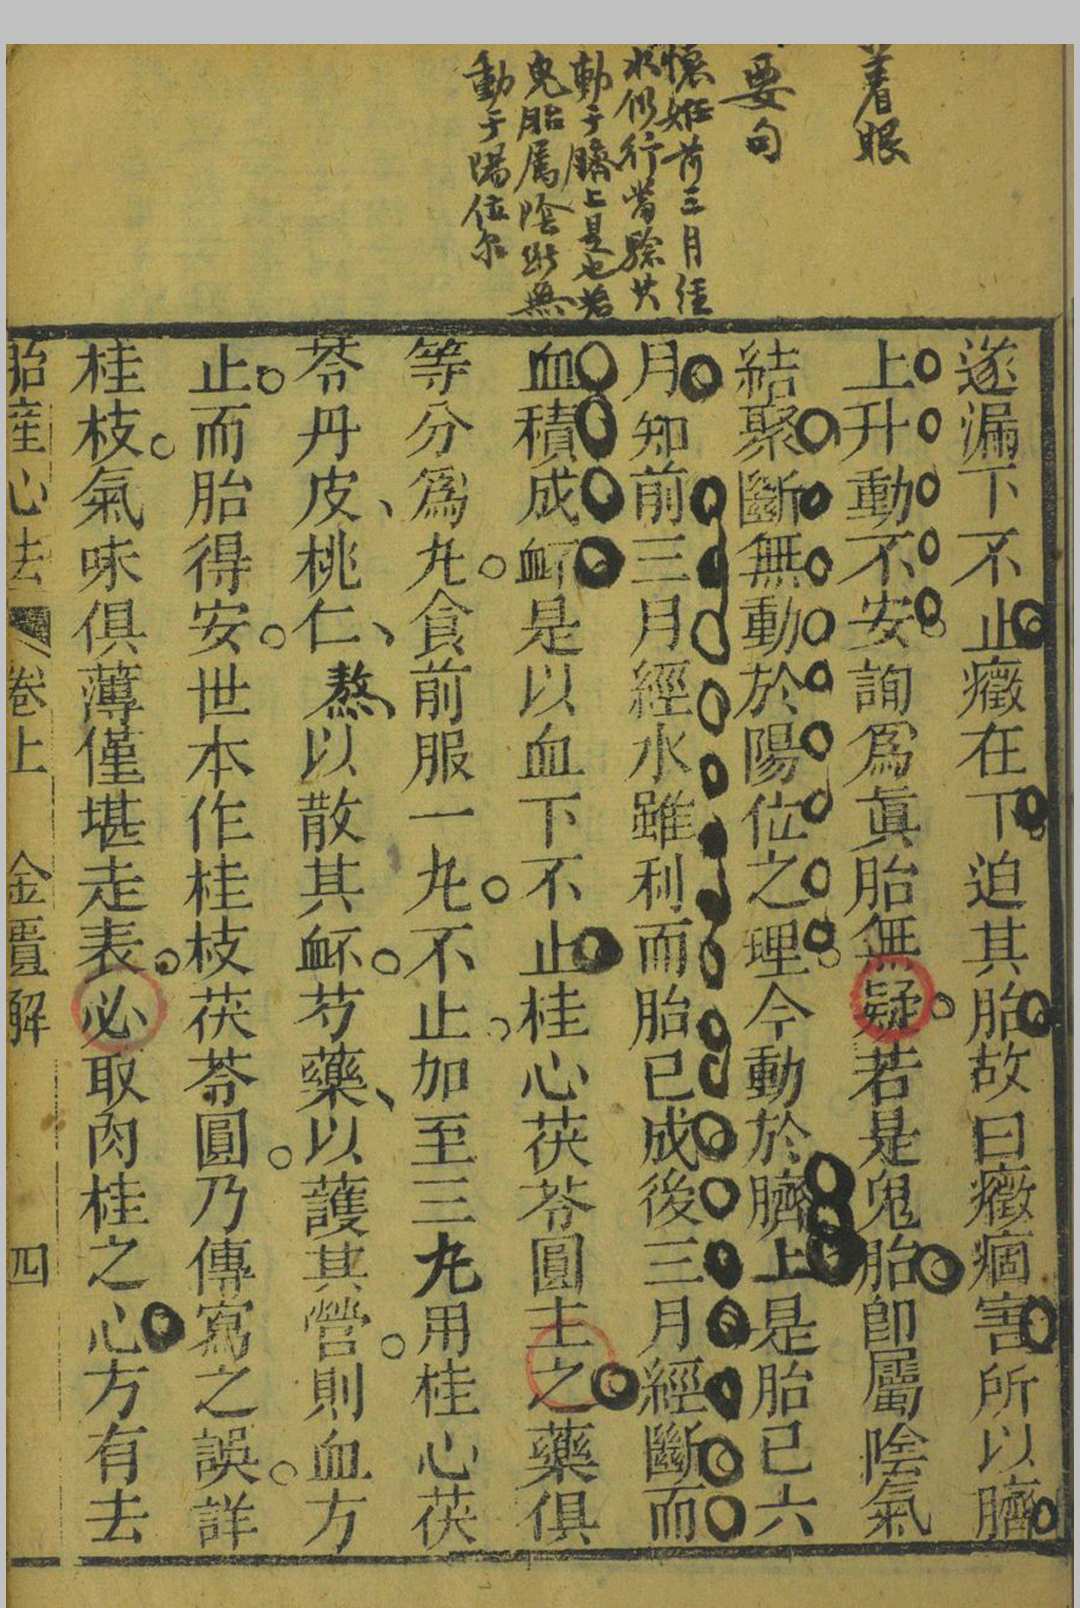 着眼
要句
懷姙前三月経
水仍行嘗驗其
動于臍上是也若
鬼胎属陰断無
動于陽位尔
遂漏下不止癥在下迫其胎故曰癥痼害所以臍
上升動不安詢爲眞胎無疑若是鬼胎卽屬陰氣
結聚斷無動於陽位之理今動於臍上是胎已六
月知前三月經水雖利而胎已成後三月經斷而
血積成衃是以血下不止桂心茯苓圓主之藥俱
等分爲丸食前服一丸不止加至三丸用桂心茯
苓丹皮桃仁熬以散其衃芍藥以護其營則血方
止而胎得安世本作桂枝茯苓圓乃傳寫之誤詳
桂枝氣味俱薄僅堪走表必取肉桂之心方有去
胎產心法 卷上 金匱解 四